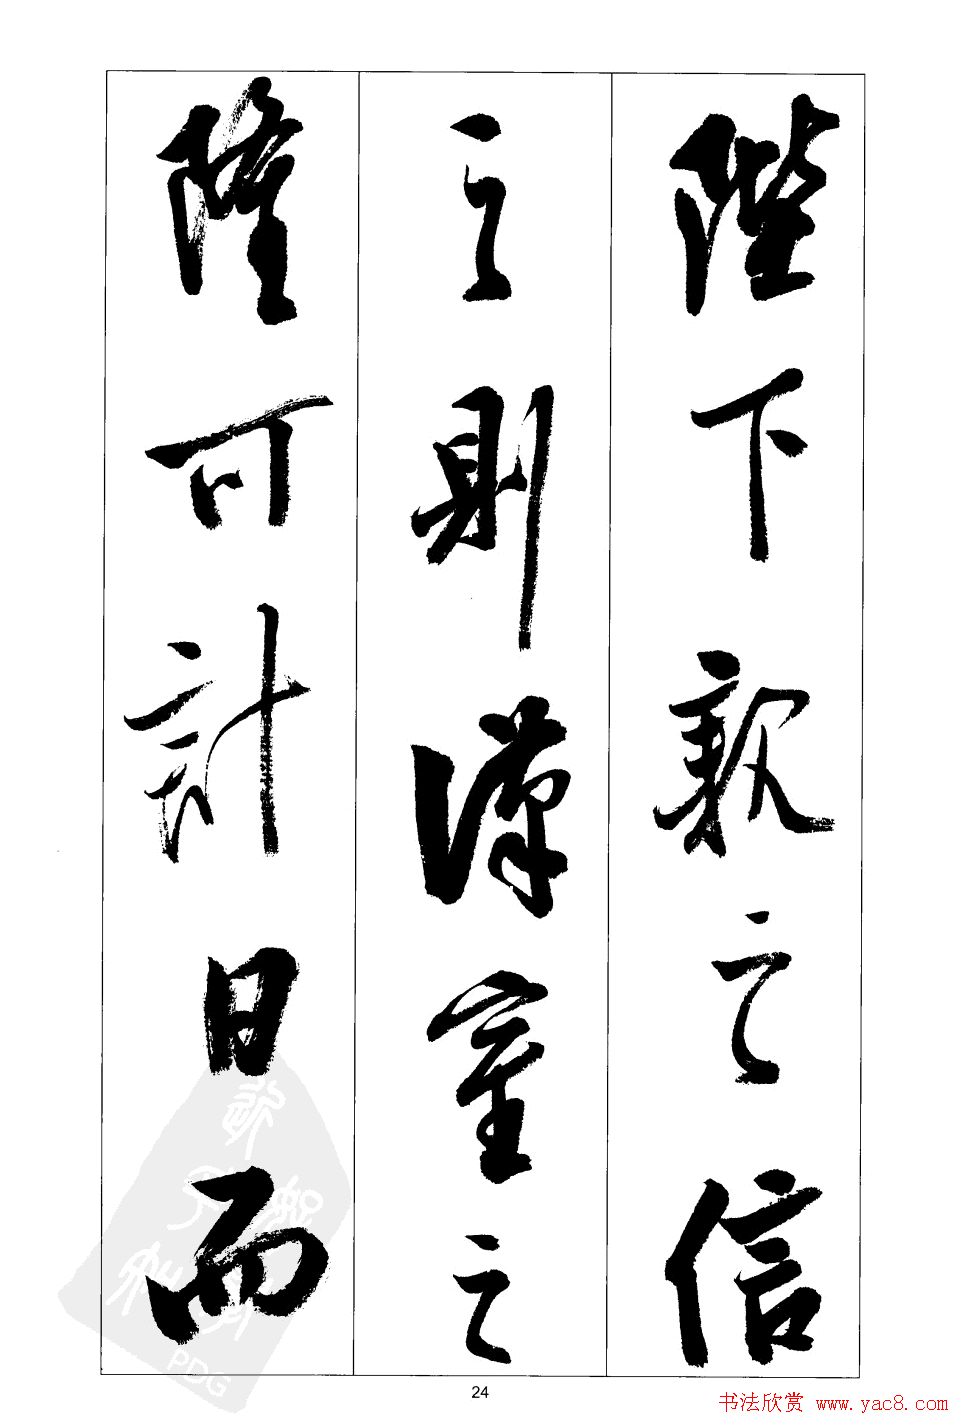 陛下親之信
之則漢室之
隆可計日而
24
书法欣赏 www.yac8.com
PDG